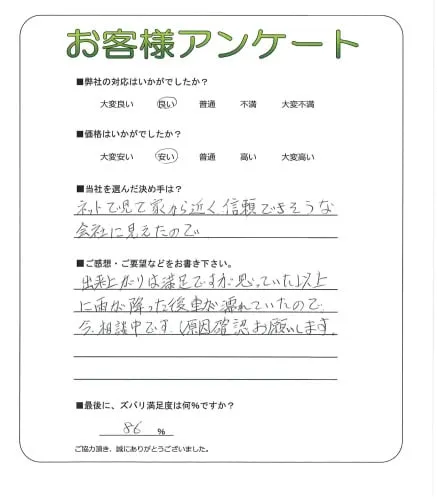 お客様アンケート
■弊社の対応はいかがでしたか?
大変良い 良い 普通 不満 大変不満
■価格はいかがでしたか?
大変安い 安い 普通 高い 大変高い
■当社を選んだ決め手は?
ネットで見て家から近く、信頼できそうな
会社に見えたので
■ご感想・ご要望などをお書き下さい。
出来上がりは満足ですが思っていた以上
に雨が降った後車が濡れていたので
今、相談中です、原因確認お願いします。
■最後に、ズバリ満足度は何%ですか?
86 %
ご協力頂き、誠にありがとうございました。